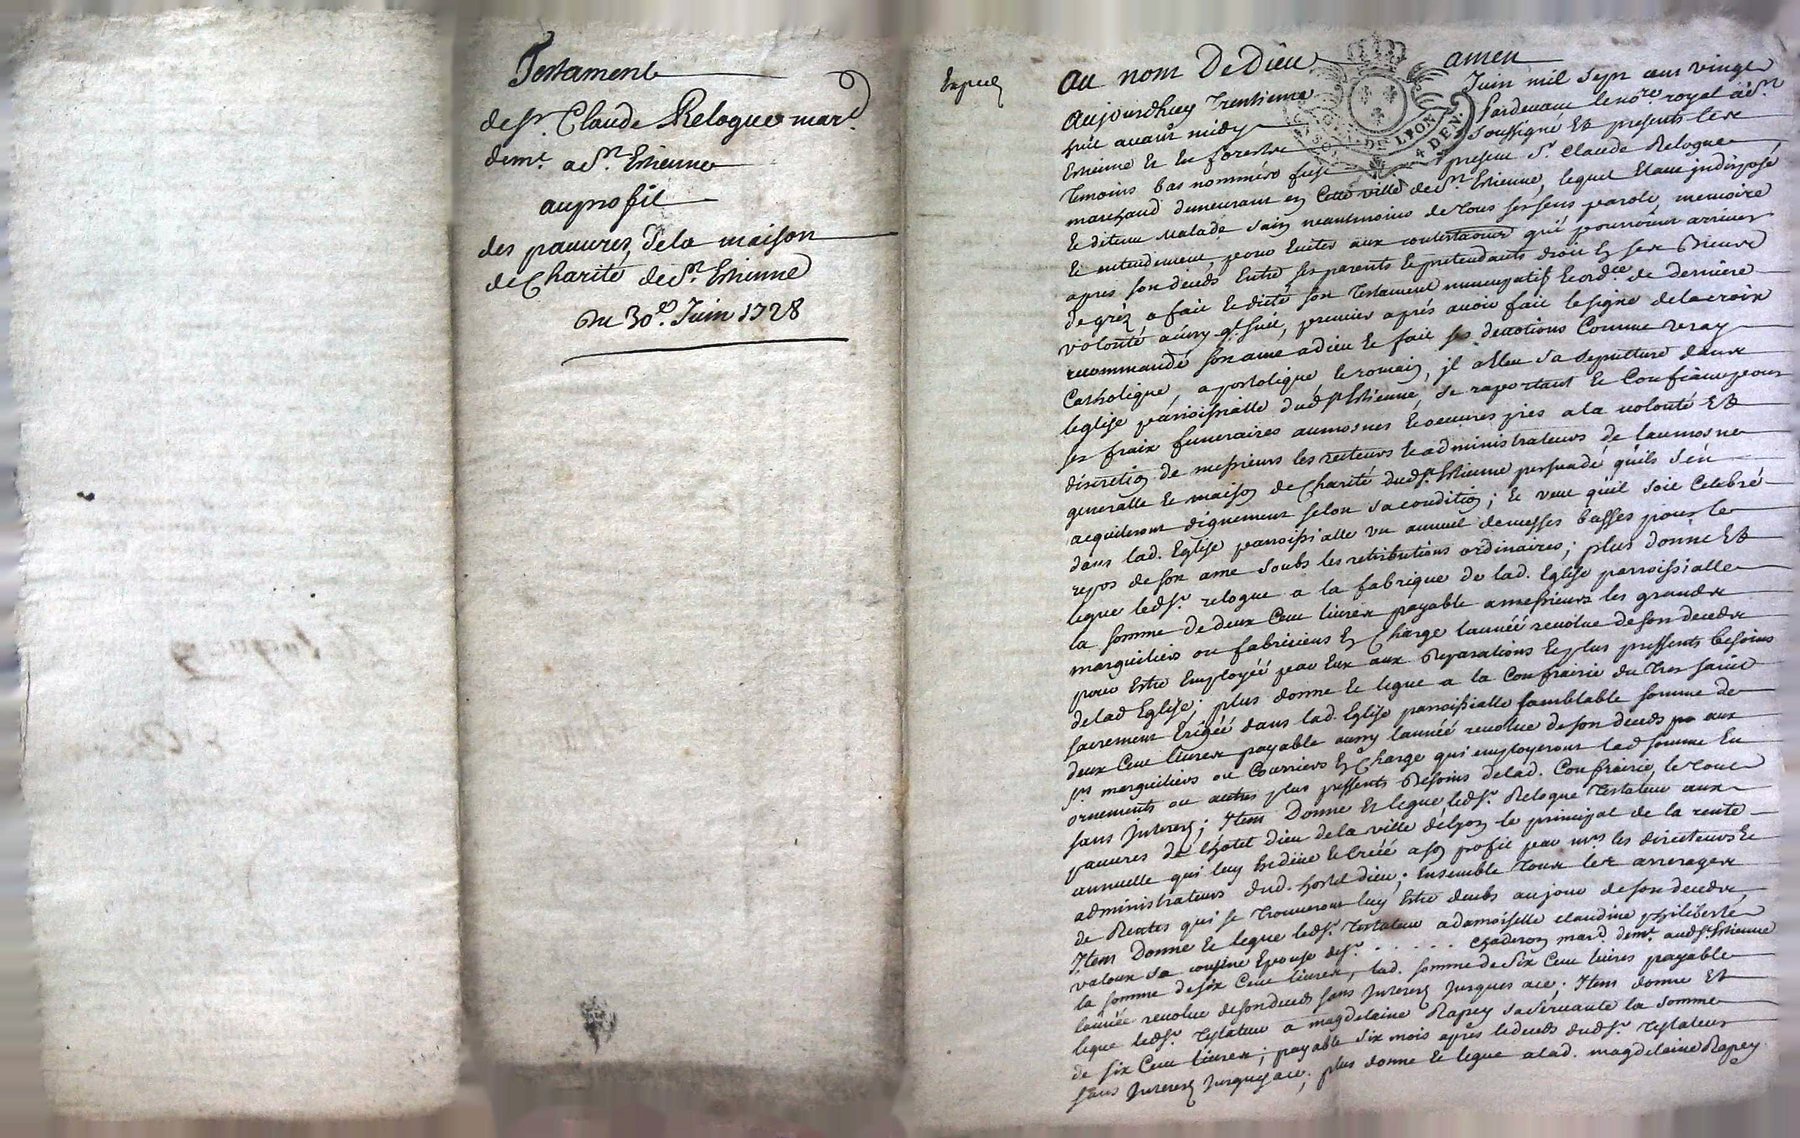 Testament
de Sr. Claude Relogue mard.
demt. a St. Estienne
au profit
des pauvres de la maison
de Charité de St. Estienne
Du 30e. Juin 1728
Expedi
au nom De dieu amen
Aujourdhuy Trentieme Juin mil sept cens vingt
huit avant midy Pardevant le nore. royal a St.
Estienne et en forestz soussigné Et presents les
Temoins bas nommés fust present Sr. Claude Relogue
marchand demeurant en Cette ville de St. Estienne, lequel Etant indisposé
et detenu malade sain neantmoins de tous ses sens parole, memoire
et entendement, pour Eviter aux contestations qui pourroient arriver
apres son deceds Entre ses parents et pretendants droit en ses Biens
de gréz a fait et dicté son Testament nuncupatif et ordce. de derniere
volonté ainsy q. suit, premier aprés avoir fait le signe de la croix
recommandé son ame a dieu et fait ses devotions Comme vray
Catholique, apostolique et romain, jl a Eleu sa sepulture dans
leglise parroissialle dud. St. Estienne, se raportant et Confiant pour
ses fraix funeraires aumosnes et oeuvres pies a la volonté Et
discretion de messieurs les recteurs et administrateurs de laumosne
generalle et maison de Charité dud. St. Estienne persuadé quils sen
acquiteront dignement selon sa condition; et veut quil soit Celebré
dans lad. Eglise parroissialle un annuel de messes basses pour le
repos de son ame soubs les retributions ordinaires; plus donne Et
legue led. Sr. relogue a la fabrique de lad. Eglise parroissialle
la somme de deux Cent livres payable a messieurs les grands
marguiliers ou fabriciens en Charge lannéé revolue de son deceds
pour Estre Employéé par Eux aux Reparations et plus pressents besoins
de lad Eglise; plus donne et legue a la Confrairie du Tres saint
sacrement Erigéé dans lad. Eglise parroissialle semblable somme de
deux Cent livres payable aussy lannéé revolue de son deceds aux
Srs. marguiliers ou Courriers en Charge qui employeront lad somme En
ornements ou autres plus pressents Besoins de lad. Confrairie, le tout
sans Jnterest; Jtem Donne Et legue led. Sr. Relogue Testateur aux
pauvres de lhotel dieu de la ville de lyon le principal de la rente
annuelle qui luy Est düe et Créé a son profit par mrs les directeurs et
administrateurs dud. hostel dieu; Ensemble tous les arrerages
de Rentes qui se trouveront luy Estre deubs au jour de son deceds
Jtem Donne et legue led. Sr. Testateur a damoiselle claudine philiberte
valoux sa cousine Epouse de Sr. . . . . . Chaderon mard. demt. aud. St. Estienne
la somme de six Cent livres, lad. somme de six Cent livres payable
lannéé revolue de son deceds sans Jnterest jusques ace; Jtem donne Et
legue led. Sr. Testateur a magdelaine Rapey sa servante la somme
de six Cent livres; payable six mois aprés le deceds dud. Sr. Testateur
sans Jnterest jusques ace; plus donne et legue a lad. magdelaine Rapey